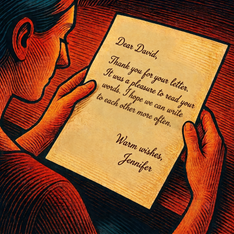 Dear David,
Thank you for your letter.
It was a pleasure to read your
words. I hope we can write
to each other more often.
Warm wishes,
Jennifer